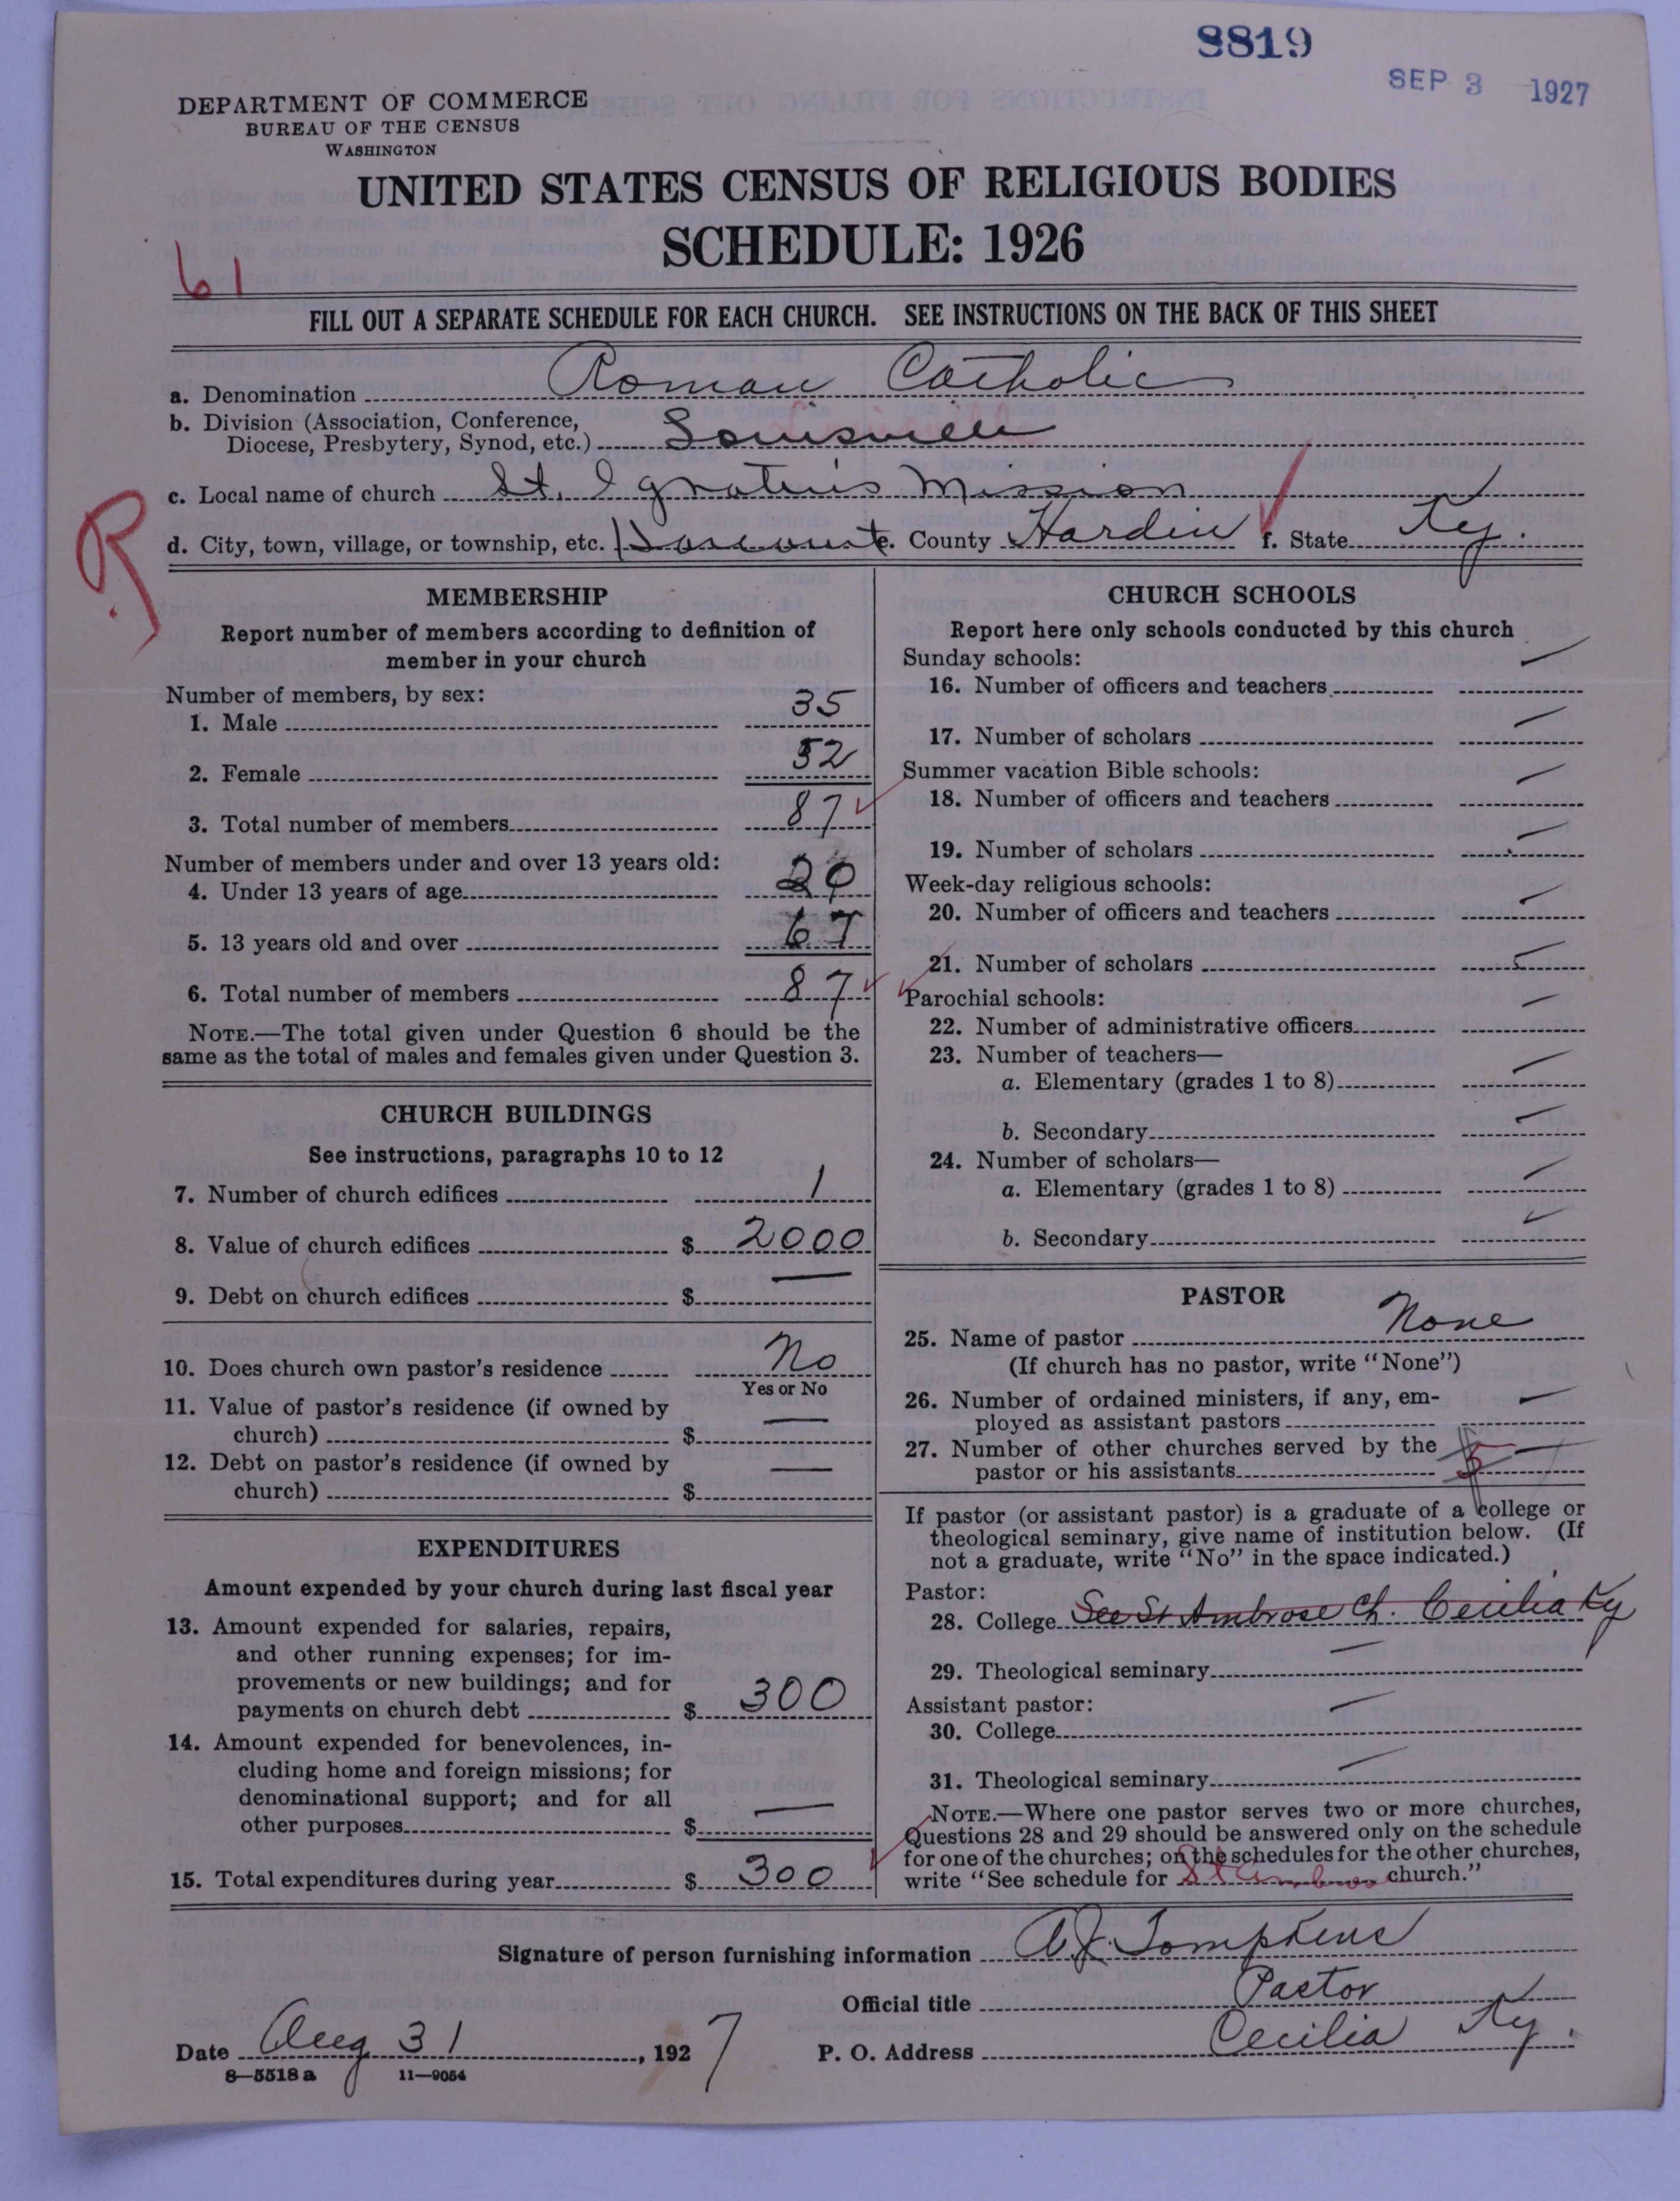 8819
SEP 3 1927
DEPARTMENT OF COMMERCE
BUREAU OF THE CENSUS
WASHINGTON
UNITED STATES CENSUS OF RELIGIOUS BODIES
SCHEDULE: 1926
61
FILL OUT A SEPARATE SCHEDULE FOR EACH CHURCH. SEE INSTRUCTIONS ON THE BACK OF THIS SHEET
a. Denomination Roman Catholic
b. Division (Association, Conference,
Diocese, Presbytery, Synod, etc.) Louisville
c. Local name of church St. Ignatius Mission
R
d. City, town, village, or township, etc. Harcourt e. County Hardin f. State Ky.
MEMBERSHIP
Report number of members according to definition of
member in your church
Number of members, by sex:
1. Male 35
2. Female 52
3. Total number of members 87
Number of members under and over 13 years old:
4. Under 13 years of age 20
5. 13 years old and over 67
6. Total number of members 87
NOTE.—The total given under Question 6 should be the
same as the total of males and females given under Question 3.
CHURCH BUILDINGS
See instructions, paragraphs 10 to 12
7. Number of church edifices 1
8. Value of church edifices $ 2000
9. Debt on church edifices $ —
10. Does church own pastor's residence No
Yes or No
11. Value of pastor's residence (if owned by
church) $ —
12. Debt on pastor's residence (if owned by
church) $ —
EXPENDITURES
Amount expended by your church during last fiscal year
13. Amount expended for salaries, repairs,
and other running expenses; for im-
provements or new buildings; and for
payments on church debt $ 300
14. Amount expended for benevolences, in-
cluding home and foreign missions; for
denominational support; and for all
other purposes $ —
15. Total expenditures during year $ 300
CHURCH SCHOOLS
Report here only schools conducted by this church
Sunday schools:
16. Number of officers and teachers —
17. Number of scholars —
Summer vacation Bible schools:
18. Number of officers and teachers —
19. Number of scholars —
Week-day religious schools:
20. Number of officers and teachers —
21. Number of scholars —
Parochial schools:
22. Number of administrative officers —
23. Number of teachers—
a. Elementary (grades 1 to 8) —
b. Secondary —
24. Number of scholars—
a. Elementary (grades 1 to 8) —
b. Secondary —
PASTOR
25. Name of pastor None
(If church has no pastor, write "None")
26. Number of ordained ministers, if any, em-
ployed as assistant pastors —
27. Number of other churches served by the
pastor or his assistants 5 —
If pastor (or assistant pastor) is a graduate of a college or
theological seminary, give name of institution below. (If
not a graduate, write "No" in the space indicated.)
Pastor:
28. College See St Ambrose Ch. Cecilia Ky
29. Theological seminary —
Assistant pastor:
30. College —
31. Theological seminary —
NOTE.—Where one pastor serves two or more churches,
Questions 28 and 29 should be answered only on the schedule
for one of the churches; on the schedules for the other churches,
write "See schedule for St Ambrose church."
Signature of person furnishing information A J Tompkins
Official title Pastor
Date Aug 31, 1927 P. O. Address Cecilia Ky.
8—5518a 11—9054